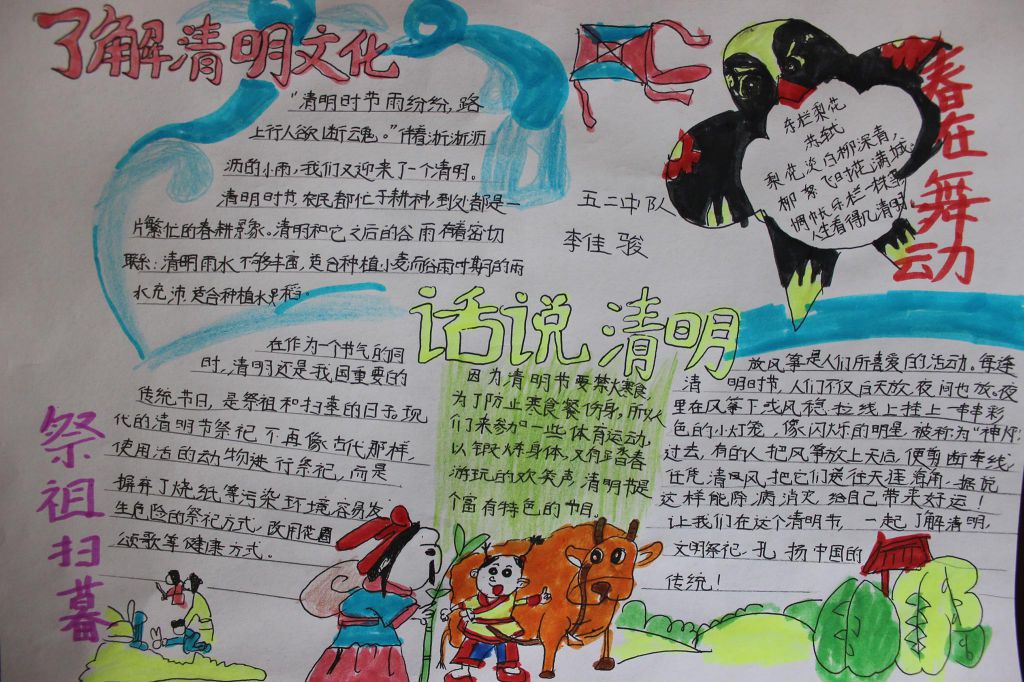 了解清明文化
"清明时节雨纷纷，路
上行人欲断魂。"伴着淅淅沥
沥的小雨，我们又迎来了一个清明。
清明时节农民都忙于耕种，到处都是一
片繁忙的春耕景象。清明和它之后的谷雨有着密切
联系：清明雨水不够丰富，适合种植小麦而谷雨时期的雨
水充沛适合种植水稻。
五二中队
李佳骏
东栏梨花
苏轼
梨花淡白柳深青，
柳絮飞时花满城。
惆怅东栏一株雪
人生看得几清明
春在舞动
话说清明
在作为一个节气的同
时，清明还是我国重要的
传统节日，是祭祖和扫墓的日子，现
代的清明节祭祀不再像古代那样，
使用活的动物进行祭祀，而是
摒弃了烧纸等污染环境容易发
生危险的祭祀方式，改用花圈
颂歌等健康方式。
祭祖扫墓
因为清明节要禁火寒食，
为了防止寒食餐伤身，所以人
们来参加一些体育运动，
以锻炼身体，又有踏春
游玩的欢笑声，清明节是
个富有特色的节日。
放风筝是人们所喜爱的活动。每逢
清明时节，人们不仅白天放，夜间也放。夜
里在风筝下或风稳拉线上挂上一串串彩
色的小灯笼，像闪烁的明星，被称为"神灯。
过去，有的人把风筝放上天后，便剪断牵线，
任凭清风把它们送往天涯海角，据说
这样能除病消灾，给自己带来好运！
让我们在这个清明节，一起了解清明，
文明祭祀，弘扬中国的
传统！